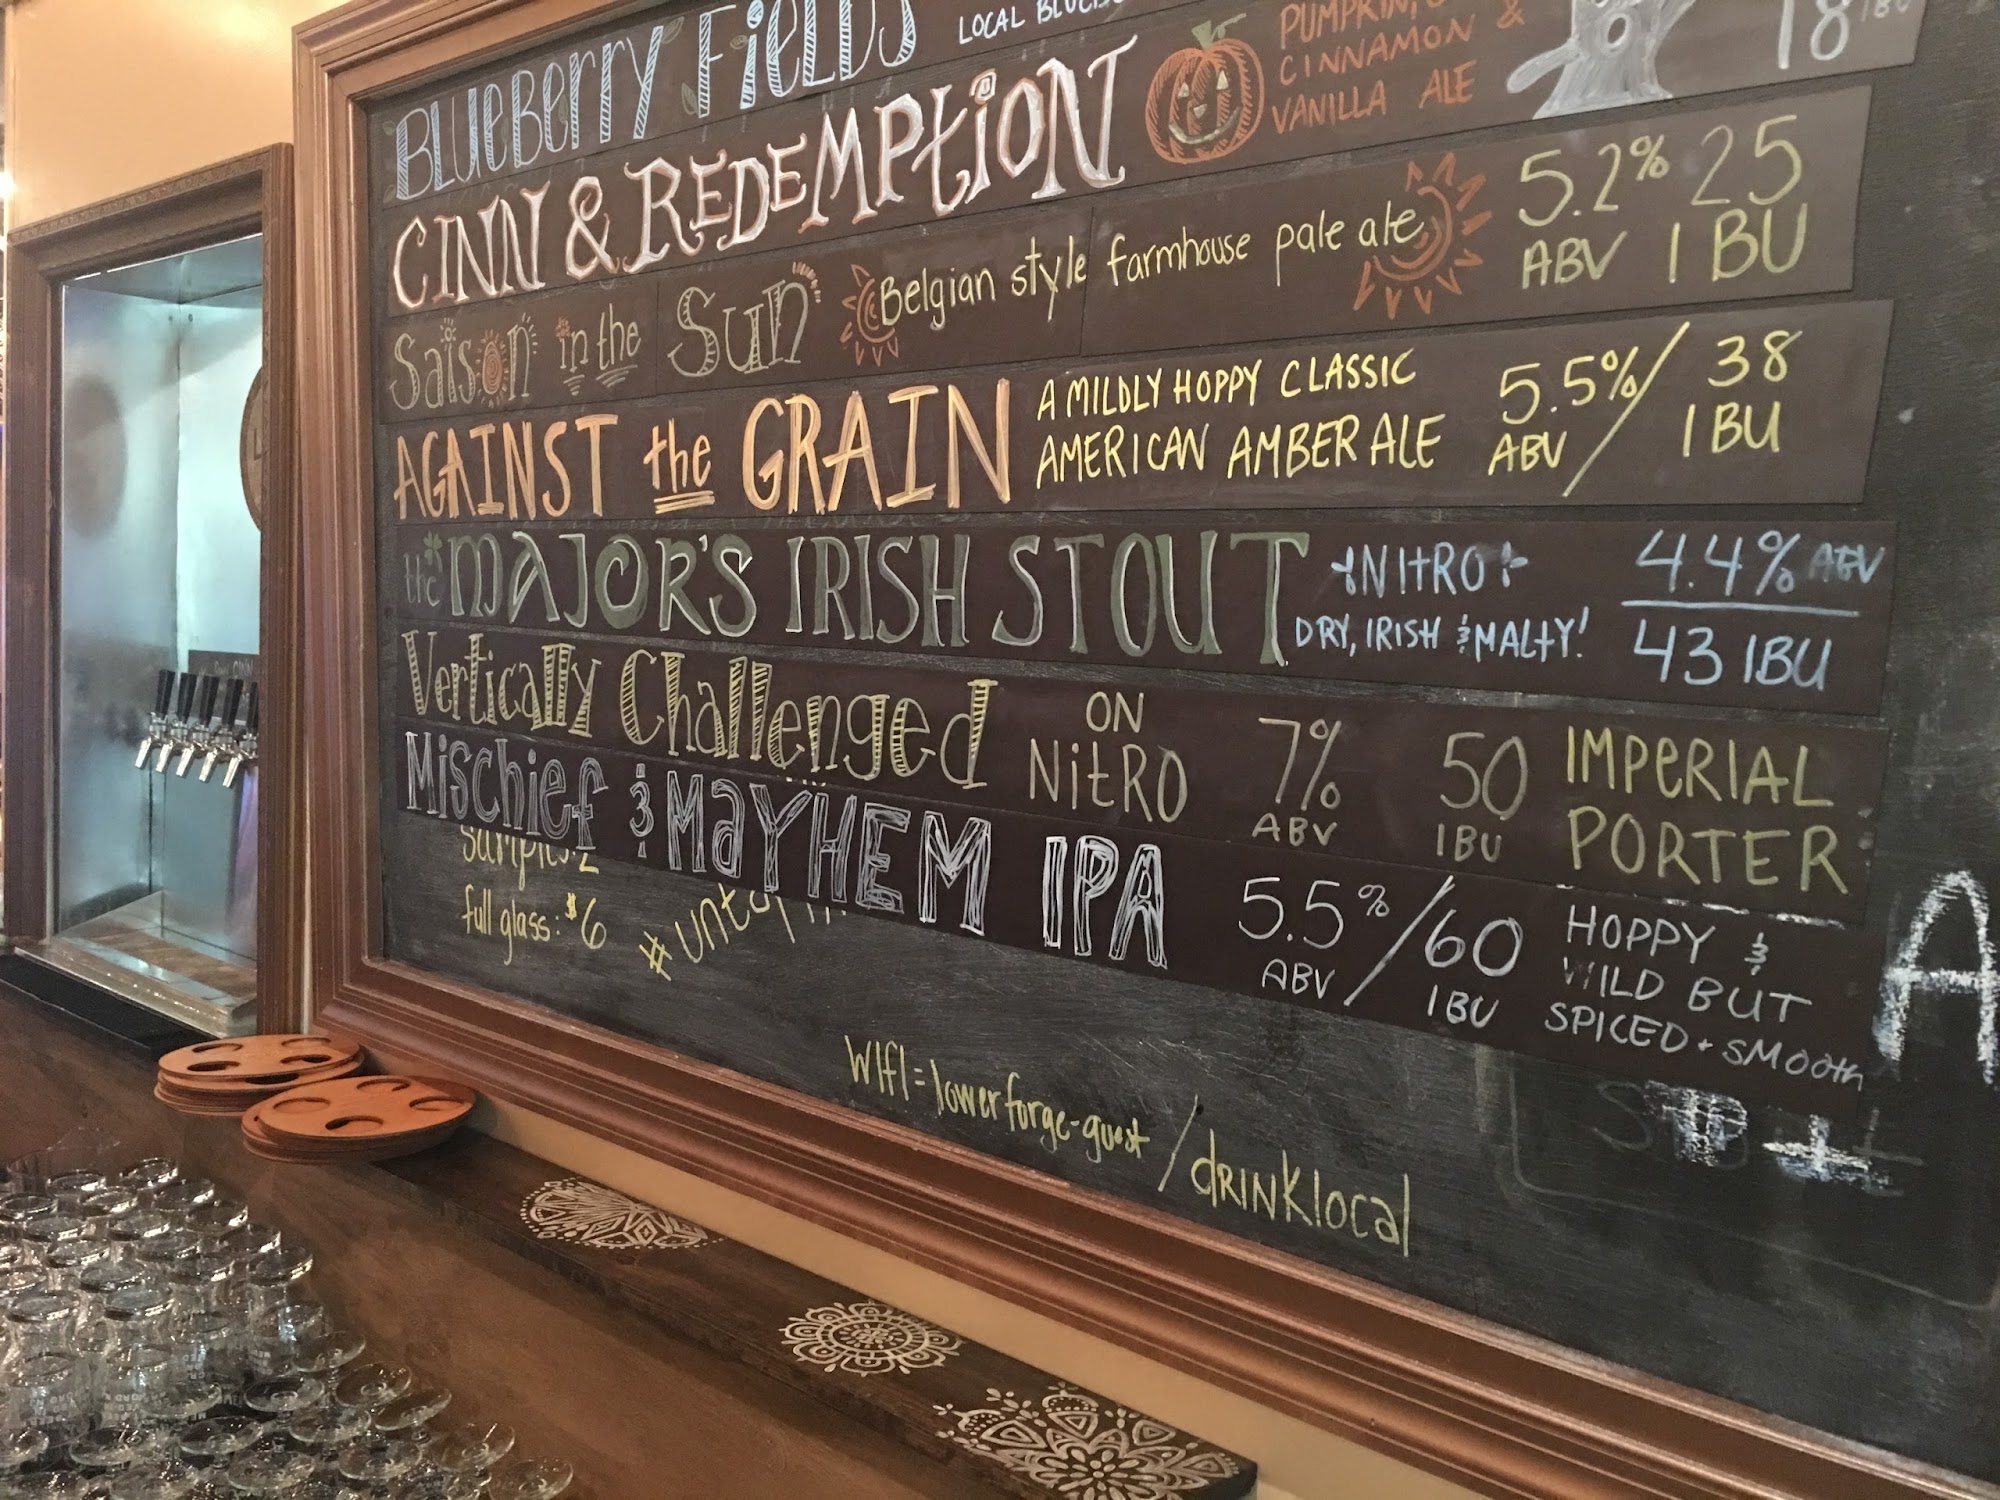 Blueberry Fields LOCAL
CINN & REDEMPTION
PUMPKIN,
CINNAMON &
VANILLA ALE
18 IBU
Saison in the Sun Belgian style farmhouse pale ale
5.2% 25
ABV IBU
AGAINST the GRAIN
A MILDLY HOPPY CLASSIC
AMERICAN AMBER ALE
5.5% / 38
ABV IBU
the MAJOR'S IRISH STOUT
NITRO
DRY, IRISH & MALTY!
4.4% ABV
43 IBU
Vertically Challenged
ON
NITRO
7%
ABV
50
IBU
IMPERIAL
PORTER
Mischief & MAYHEM IPA
5.5% / 60
ABV IBU
HOPPY &
WILD BUT
SPICED + SMOOTH
full glass: $6
WIFI = lowerforge-guest / drinklocal
A